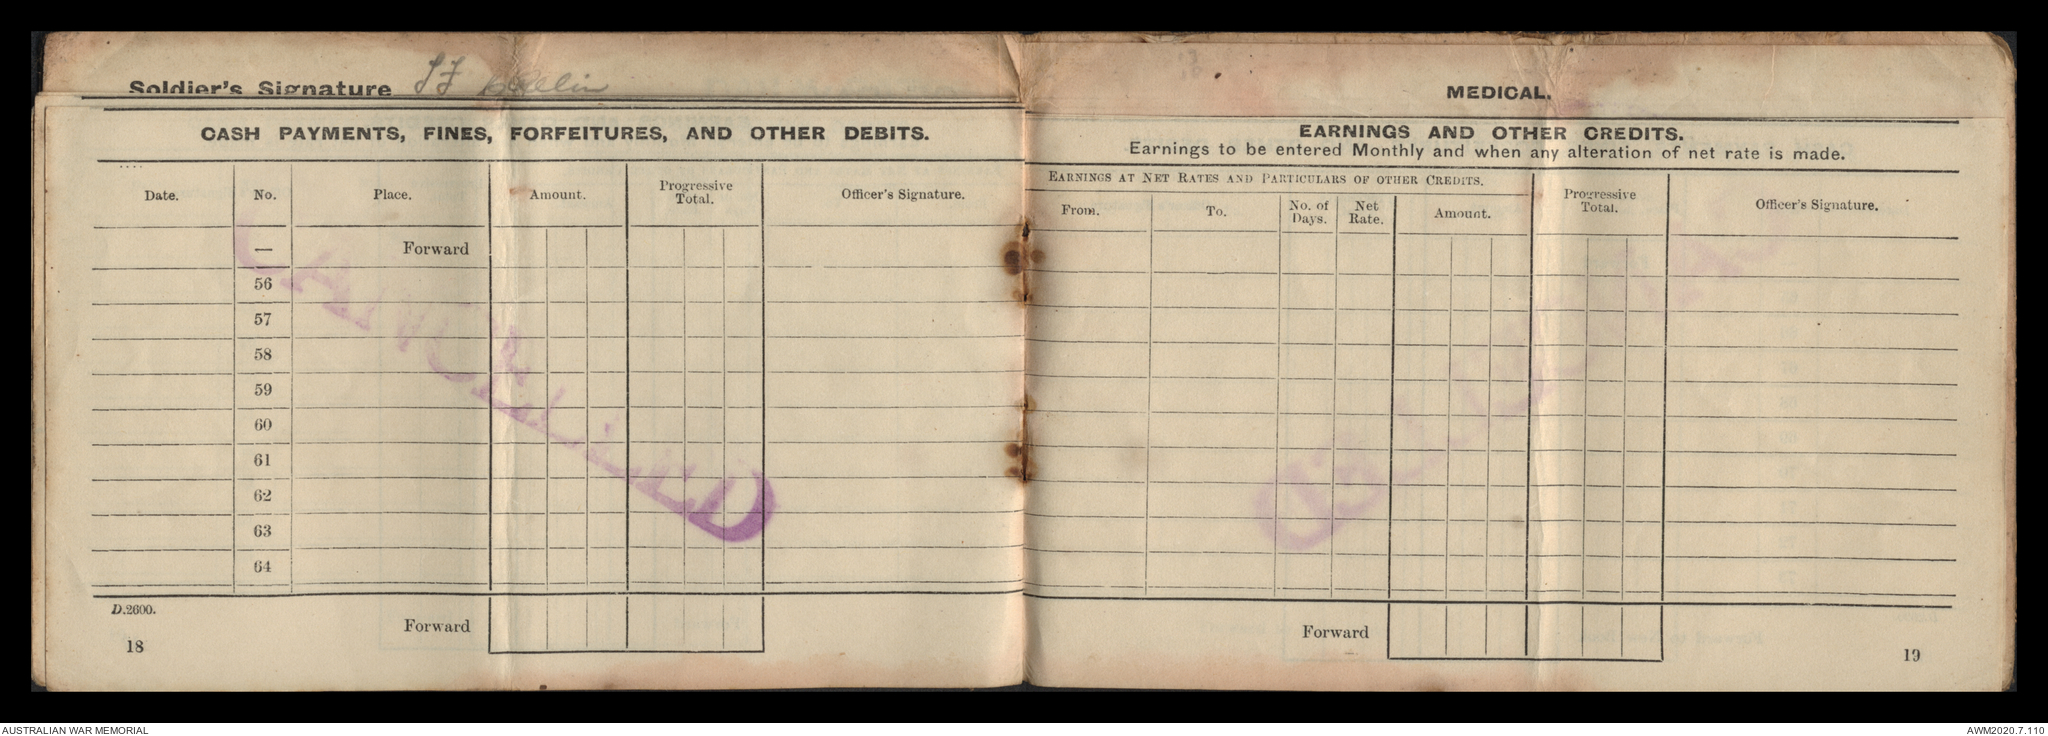 Soldier's Signature
MEDICAL.
CASH PAYMENTS, FINES, FORFEITURES, AND OTHER DEBITS.
Date. No. Place. Amount. Progressive Total. Officer's Signature.
— Forward
56
57
58
59
60
61
62
63
64
CANCELLED
D.2600.
Forward
18
EARNINGS AND OTHER CREDITS.
Earnings to be entered Monthly and when any alteration of net rate is made.
EARNINGS AT NET RATES AND PARTICULARS OF OTHER CREDITS.
From. To. No. of Days. Net Rate. Amount. Progressive Total. Officer's Signature.
Forward
19
AUSTRALIAN WAR MEMORIAL
AWM2020.7.110